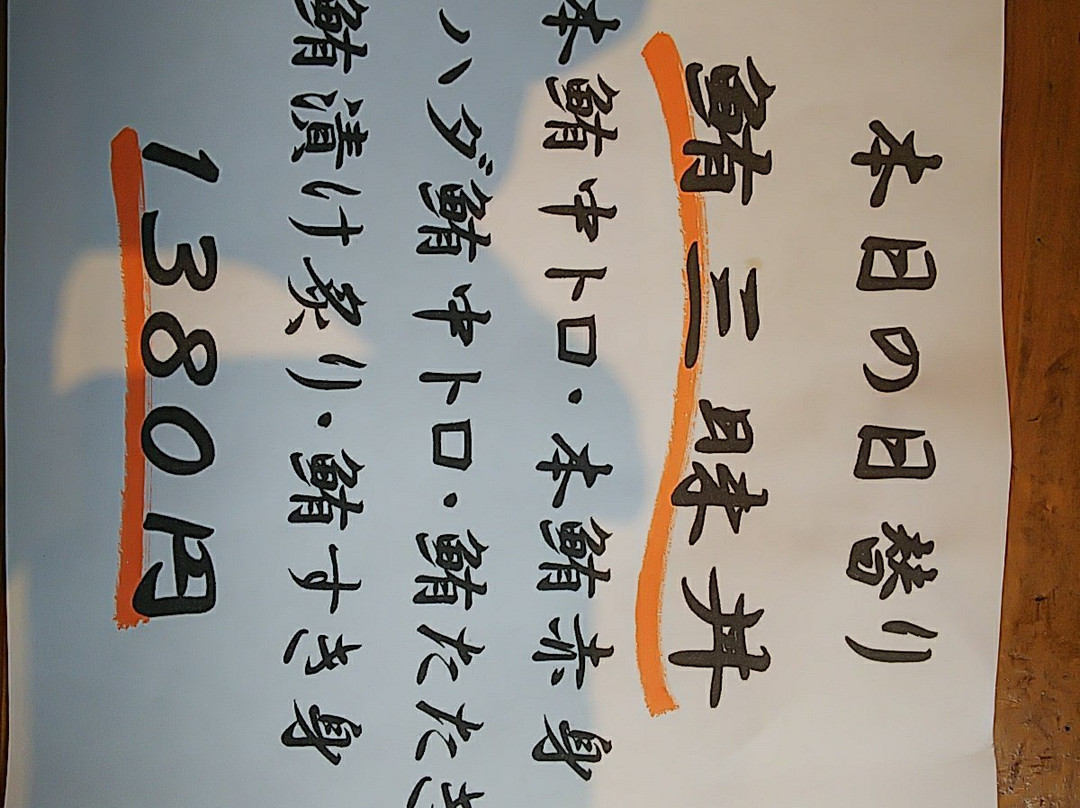 本日の日替り
鮪三昧丼
本鮪中トロ・本鮪赤身
ハダ鮪中トロ・鮪たたき
鮪漬け炙り・鮪すき身
1380円